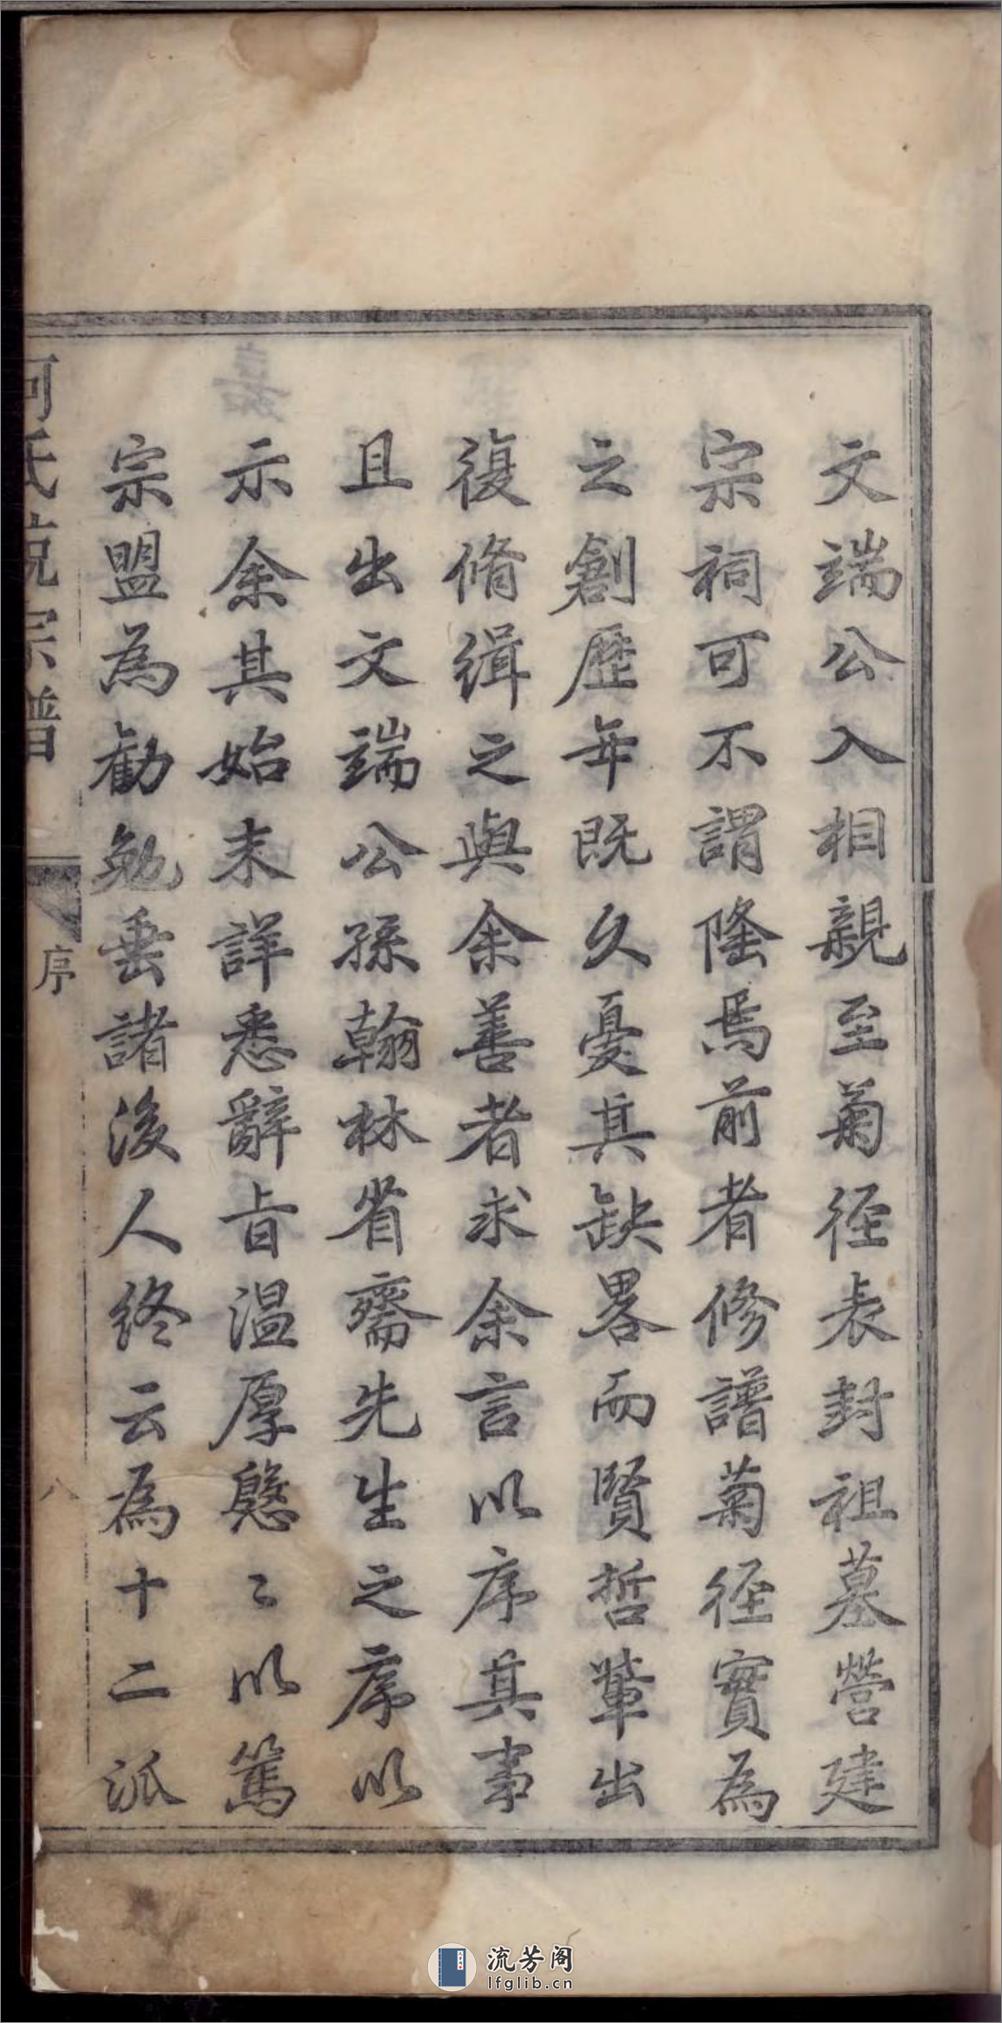 文端公入相親至菊徑表封祖墓營建
宗祠可不謂隆焉前者修譜菊徑實為
之創歷年既久憂其缺畧而賢哲輩出
復脩緝之與余善者求余言以序其事
且出文端公孫翰林省齋先生之序以
示余其始末詳悉辭旨溫厚慇〻以篤
宗盟為勸勉垂諸後人終云為十二派
何氏統宗譜
序
八
流芳阁
lfglib.cn